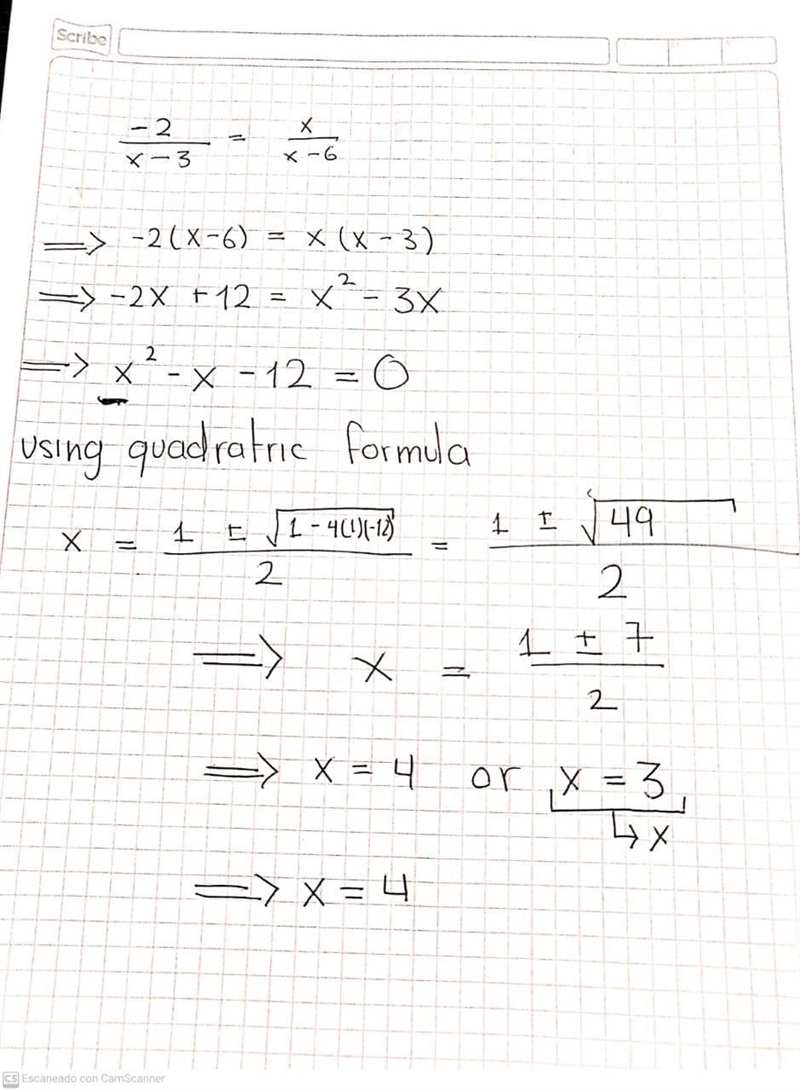 Scribe
-2/(x-3) = x/(x-6)
⟹ -2(x-6) = x(x-3)
⟹ -2x + 12 = x² - 3x
⟹ x² - x - 12 = 0
using quadratric formula
x = (1 ± √(1 - 4(1)(-12)))/2 = (1 ± √49)/2
⟹ x = (1 ± 7)/2
⟹ x = 4 or x = 3
↳ x
⟹ x = 4
CS Escaneado con CamScanner